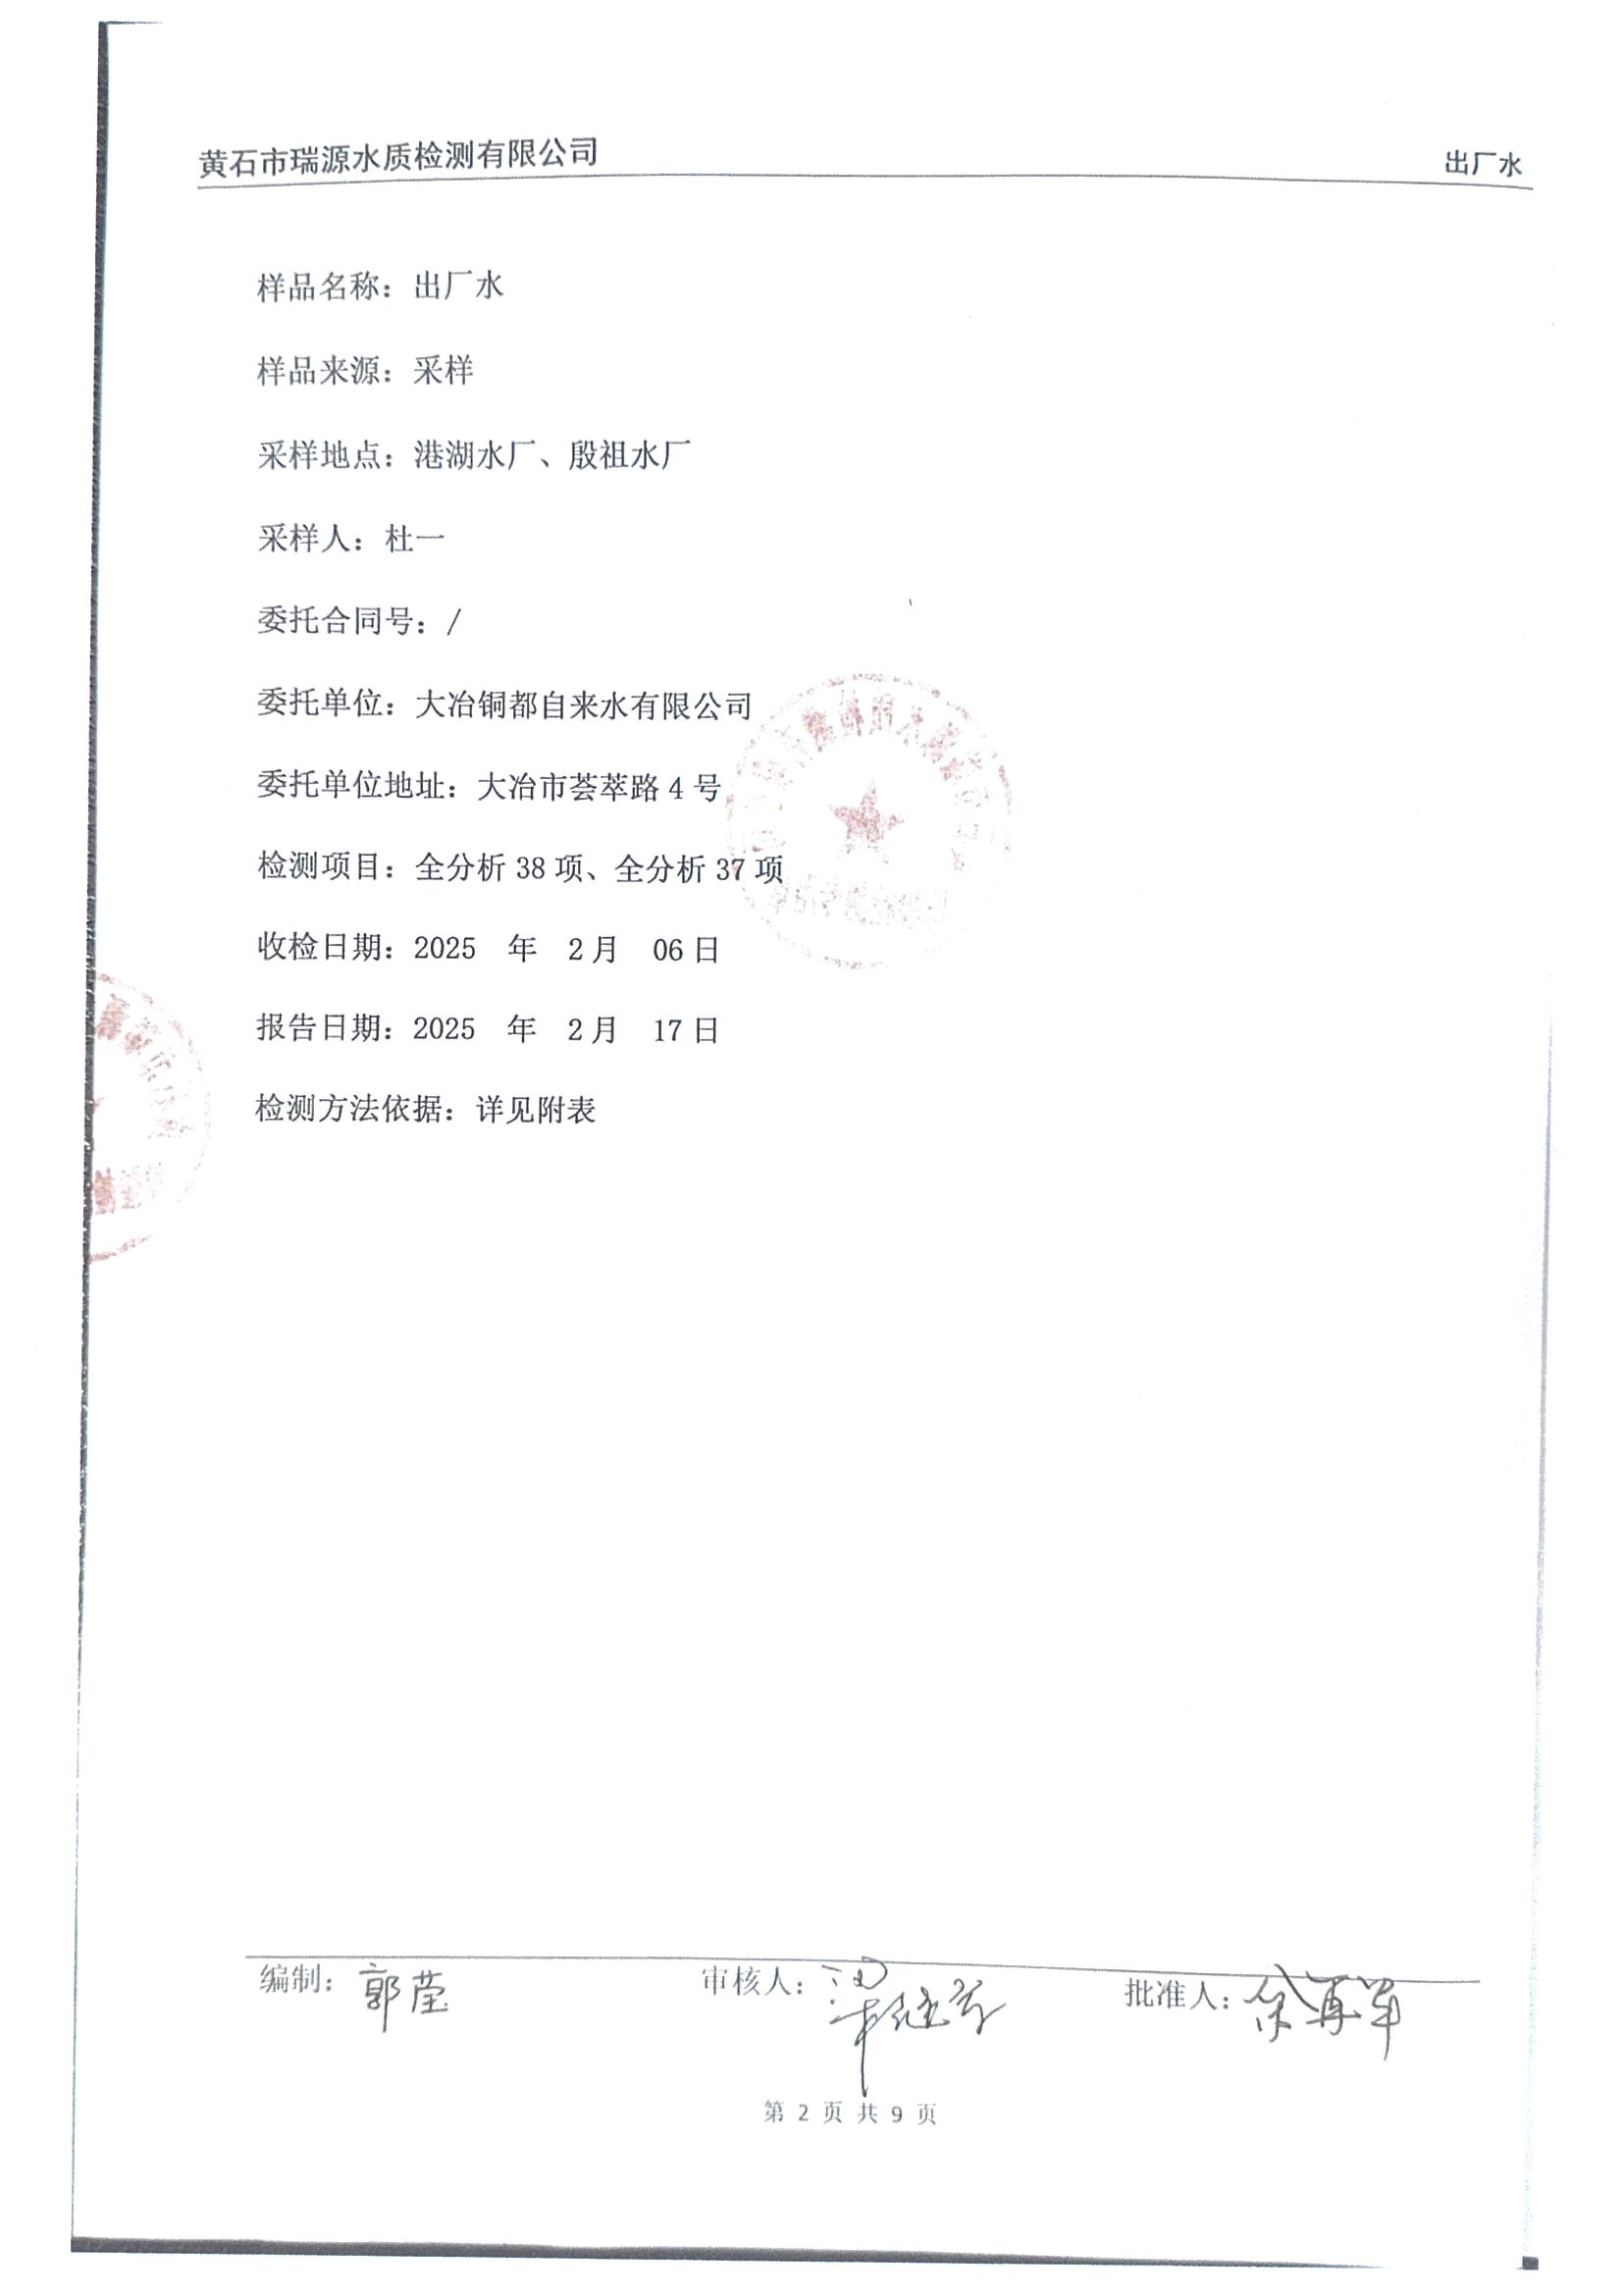 黄石市瑞源水质检测有限公司 出厂水
样品名称：出厂水
样品来源：采样
采样地点：港湖水厂、殷祖水厂
采样人：杜一
委托合同号：/
委托单位：大冶铜都自来水有限公司
委托单位地址：大冶市荟萃路 4 号
检测项目：全分析 38 项、全分析 37 项
收检日期：2025 年 2 月 06 日
报告日期：2025 年 2 月 17 日
检测方法依据：详见附表
编制：郭莹 审核人： 批准人：
第 2 页 共 9 页